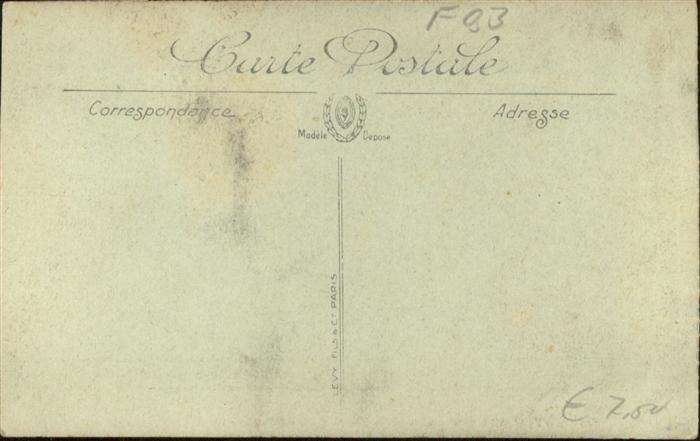 F 93
Carte Postale
Correspondance
Adresse
Modèle Déposé
LEVY FILS & Cie PARIS
€ 7,50